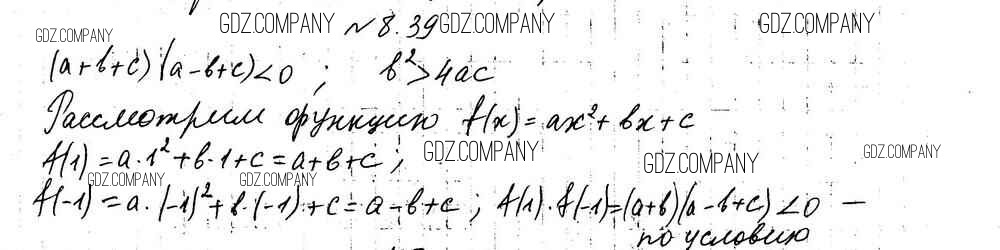 GDZ.COMPANY № 8.39 GDZ.COMPANY GDZ.COMPANY
GDZ.COMPANY
(a+b+c)(a-b+c)<0 ; b²>4ac
Рассмотрим функцию f(x)=ax²+bx+c
f(1)=a·1²+b·1+c=a+b+c ; GDZ.COMPANY GDZ.COMPANY GDZ.COMPANY
GDZ.COMPANY GDZ.COMPANY
f(-1)=a·(-1)²+b·(-1)+c=a-b+c ; f(1)·f(-1)=(a+b)(a-b+c)<0 —
по условию